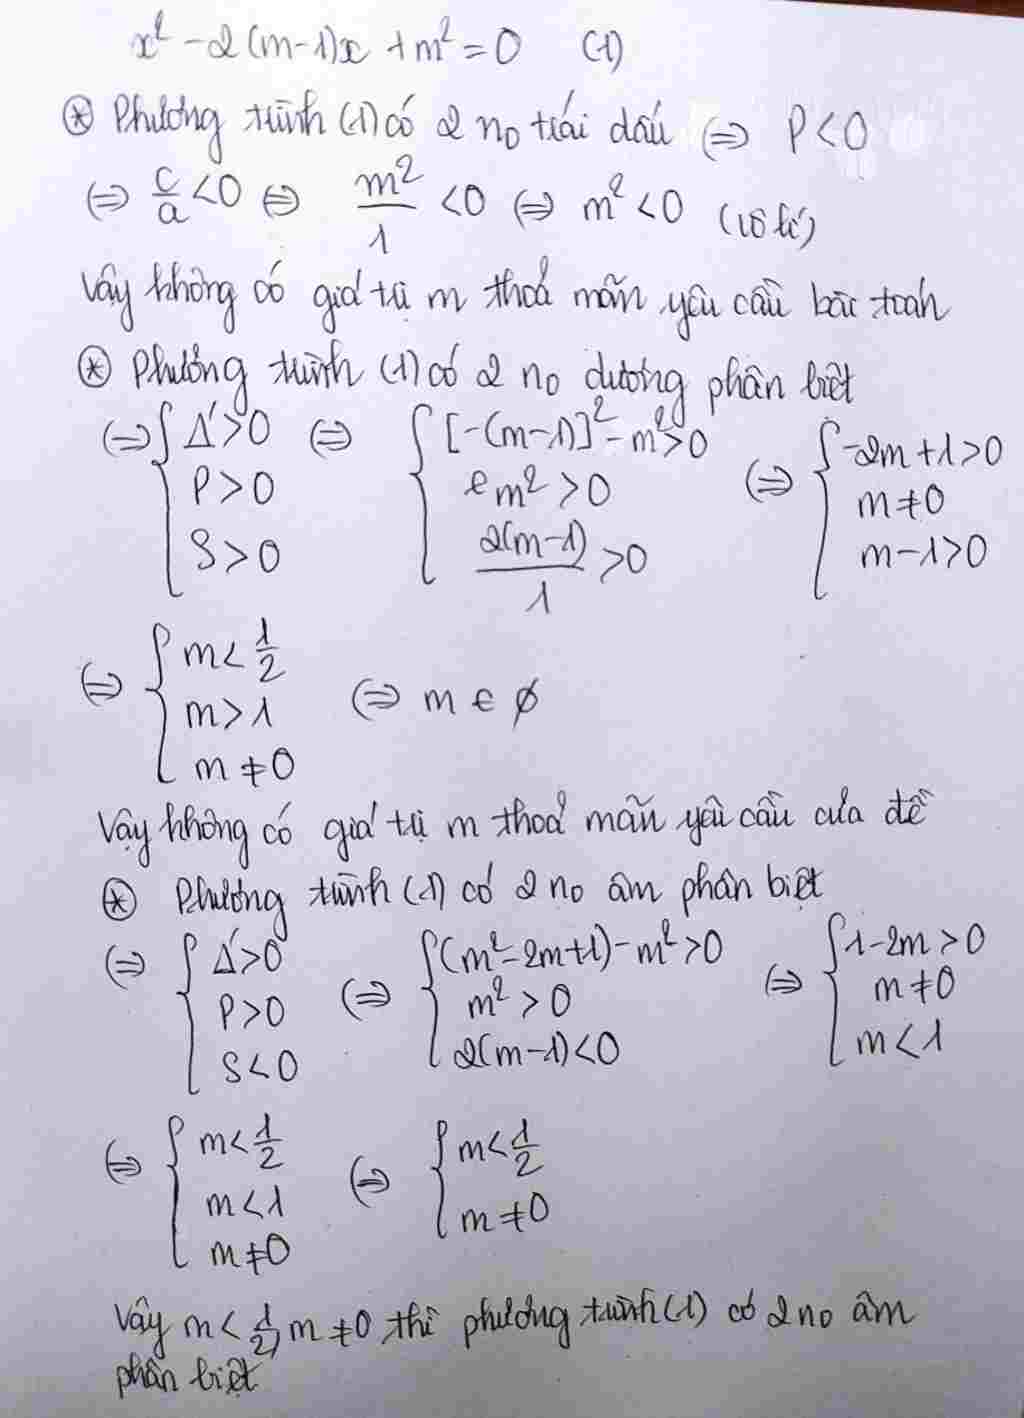 x² - 2(m-1)x + m² = 0 (1)
⊛ Phương trình (1) có 2 n₀ trái dấu ⇔ P < 0
⇔ c/a < 0 ⇔ m²/1 < 0 ⇔ m² < 0 (vô lí)
Vậy không có giá trị m thoả mãn yêu cầu bài toán
⊛ Phương trình (1) có 2 n₀ dương phân biệt
⇔ { Δ' > 0 ⇔ { [-(m-1)]² - m² > 0 ⇔ { -2m + 1 > 0
P > 0 m² > 0 m ≠ 0
S > 0 2(m-1)/1 > 0 m - 1 > 0
⇔ { m < 1/2
m > 1 ⇔ m ∈ ∅
m ≠ 0
Vậy không có giá trị m thoả mãn yêu cầu của đề
⊛ Phương trình (1) có 2 n₀ âm phân biệt
⇔ { Δ' > 0 ⇔ { (m² - 2m + 1) - m² > 0 ⇔ { 1 - 2m > 0
P > 0 m² > 0 m ≠ 0
S < 0 2(m-1) < 0 m < 1
⇔ { m < 1/2 ⇔ { m < 1/2
m < 1 m ≠ 0
m ≠ 0
Vậy m < 1/2, m ≠ 0 thì phương trình (1) có 2 n₀ âm
phân biệt